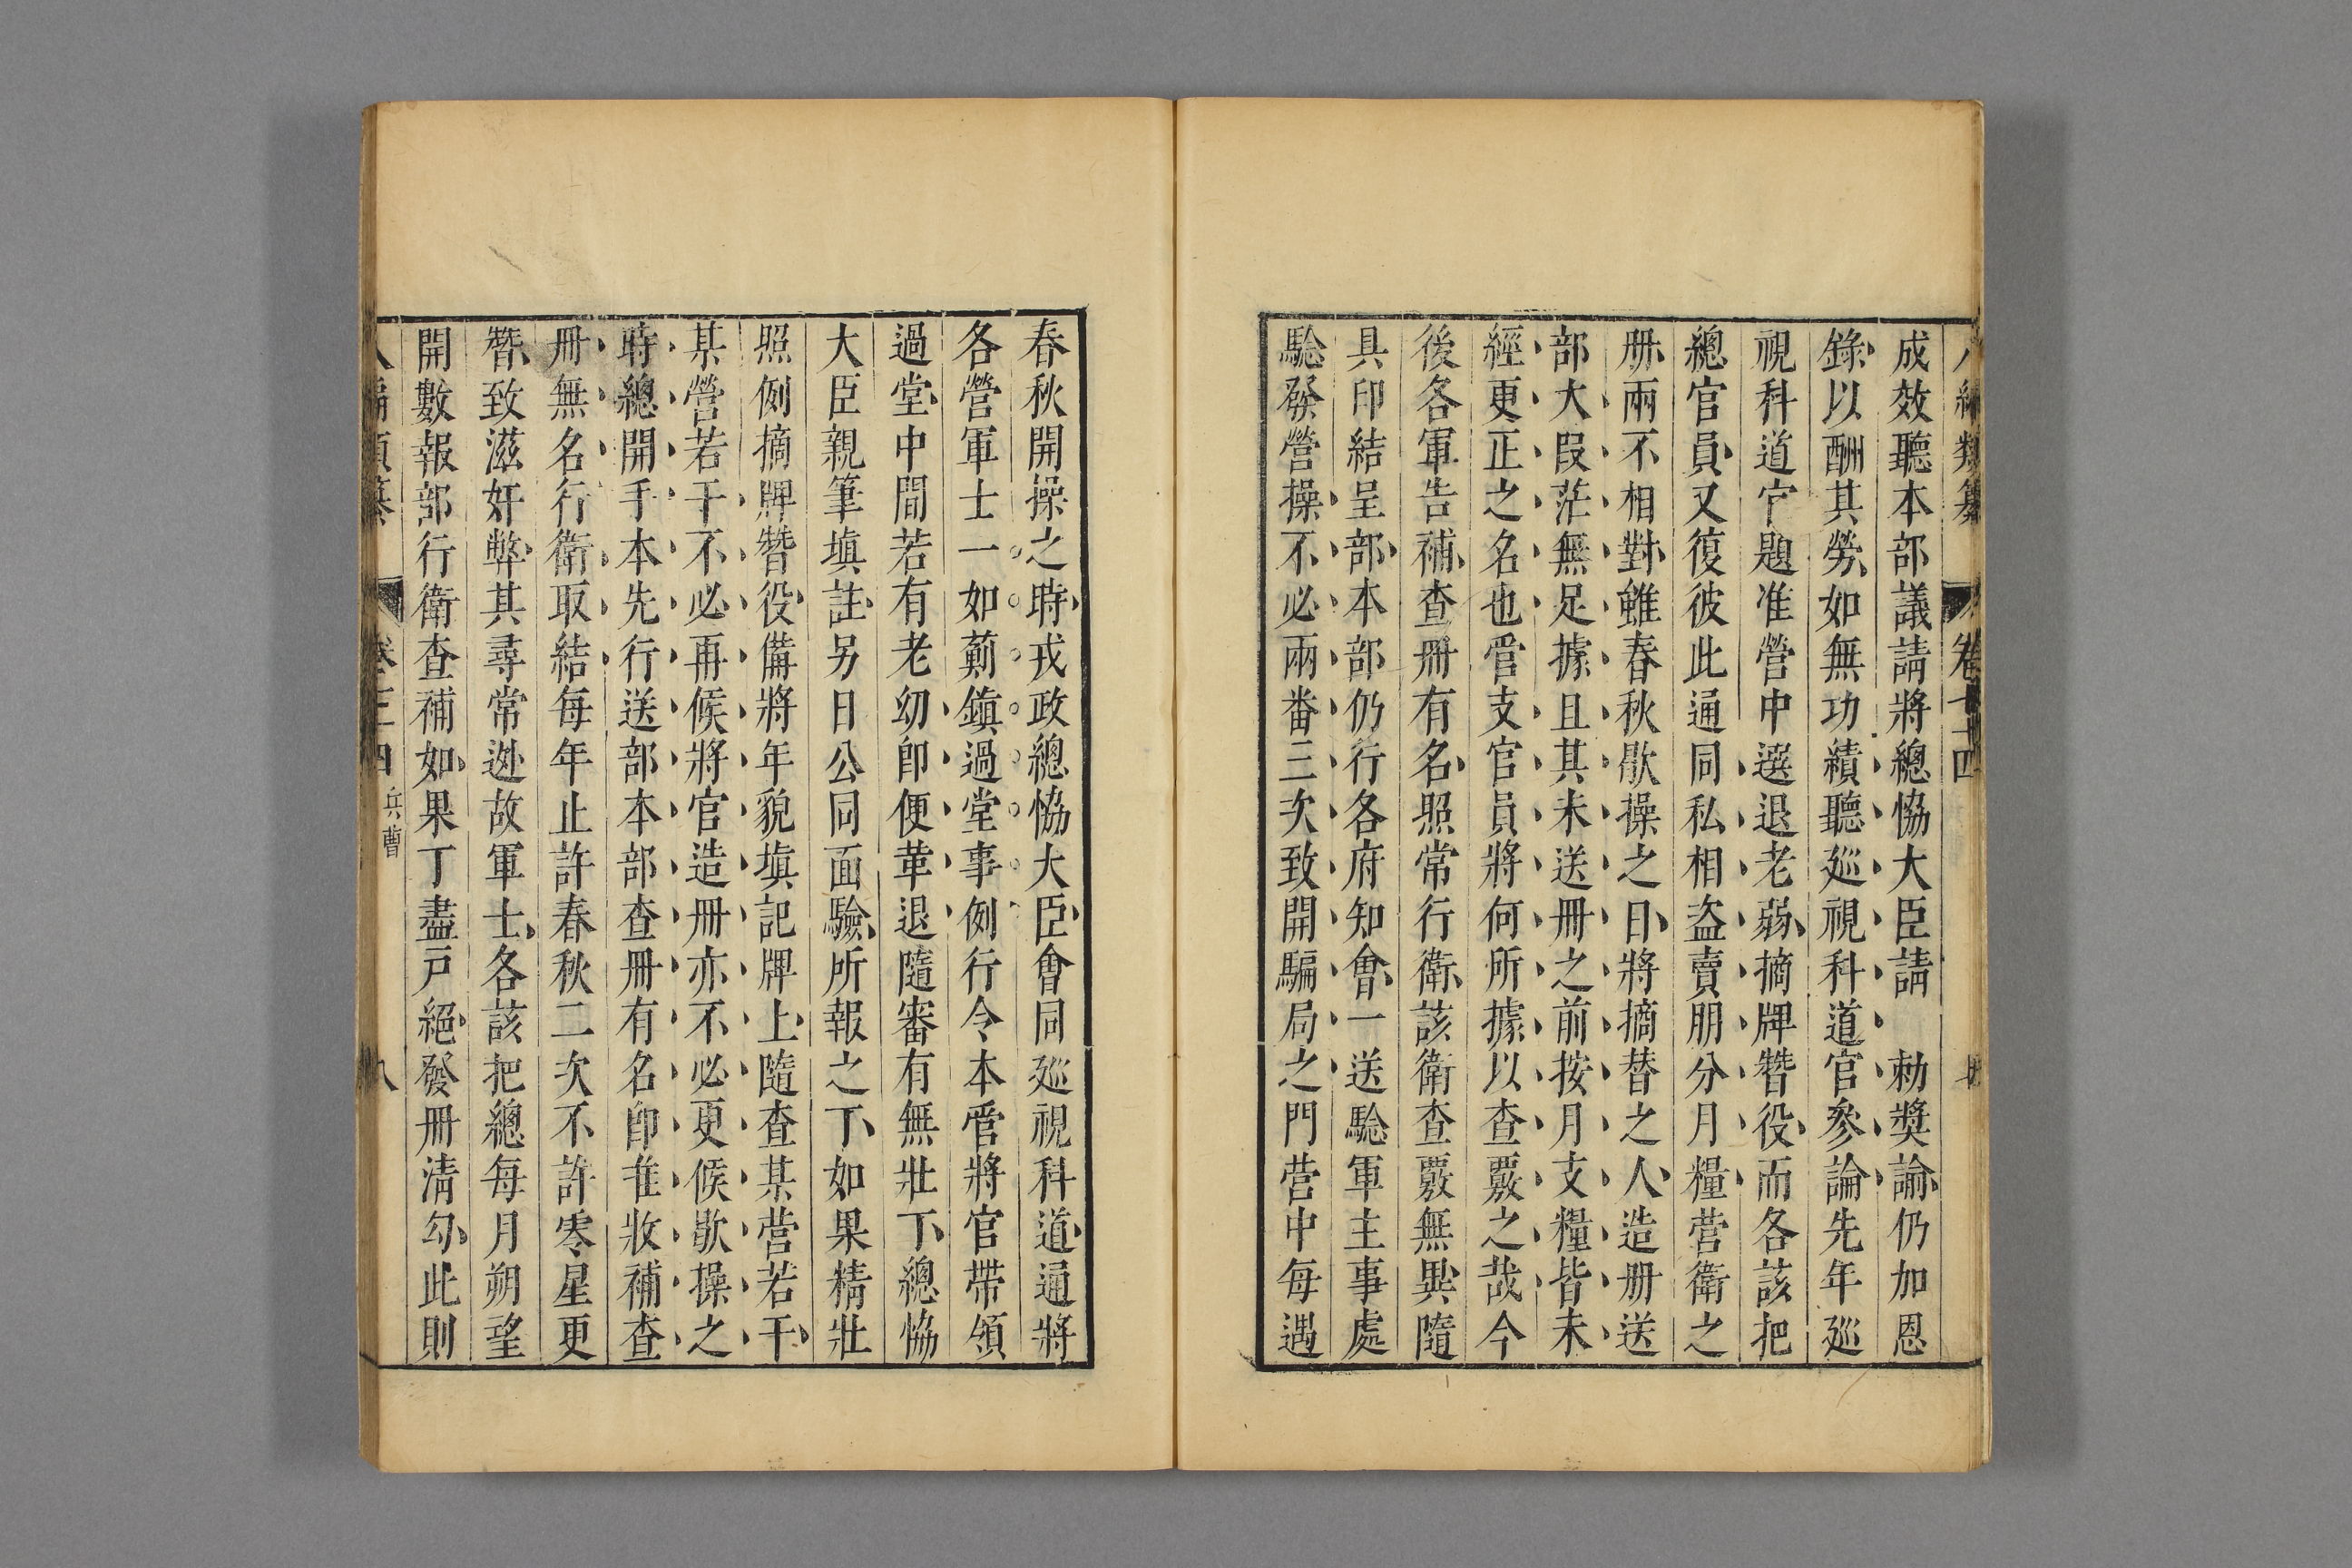 成效聽本部議請將總恊大臣請　勅奬諭仍加恩
錄以酬其勞如無功績聽廵視科道官參論先年廵
視科道官題准營中選退老弱摘牌替役而各該把
總官員又復彼此通同私相盗賣朋分月糧营衛之
册兩不相對雖春秋歇操之日將摘替之人造册送
部大叚茫無足據且其未送冊之前按月支糧皆未
經更正之名也管支官員將何所據以查覈之哉今
後各軍告補查冊有名照常行衛該衛查覈無異隨
具印結呈部本部仍行各府知會一送騐軍主事處
騐發營操不必兩番三次致開騙局之門营中每遇
春秋開操之時戎政總恊大臣會同廵視科道通將
各營軍士一如薊鎮過堂事例行令本管將官帶領
過堂中間若有老幼即便革退隨審有無壯丁總恊
大臣親筆填註另日公同面驗所報之丁如果精壯
照例摘牌替役備將年貌填記牌上隨查某营若干
某營若干不必再候將官造冊亦不必更候歇操之
時總開手本先行送部本部查冊有名即准收補查
冊無名行衛取結每年止許春秋二次不許零星更
替致滋奸弊其尋常逃故軍士各該把總每月朔望
開數報部行衛查補如果丁盡戸絕發冊淸勾此則
八編類纂　卷　四　兵曹　八